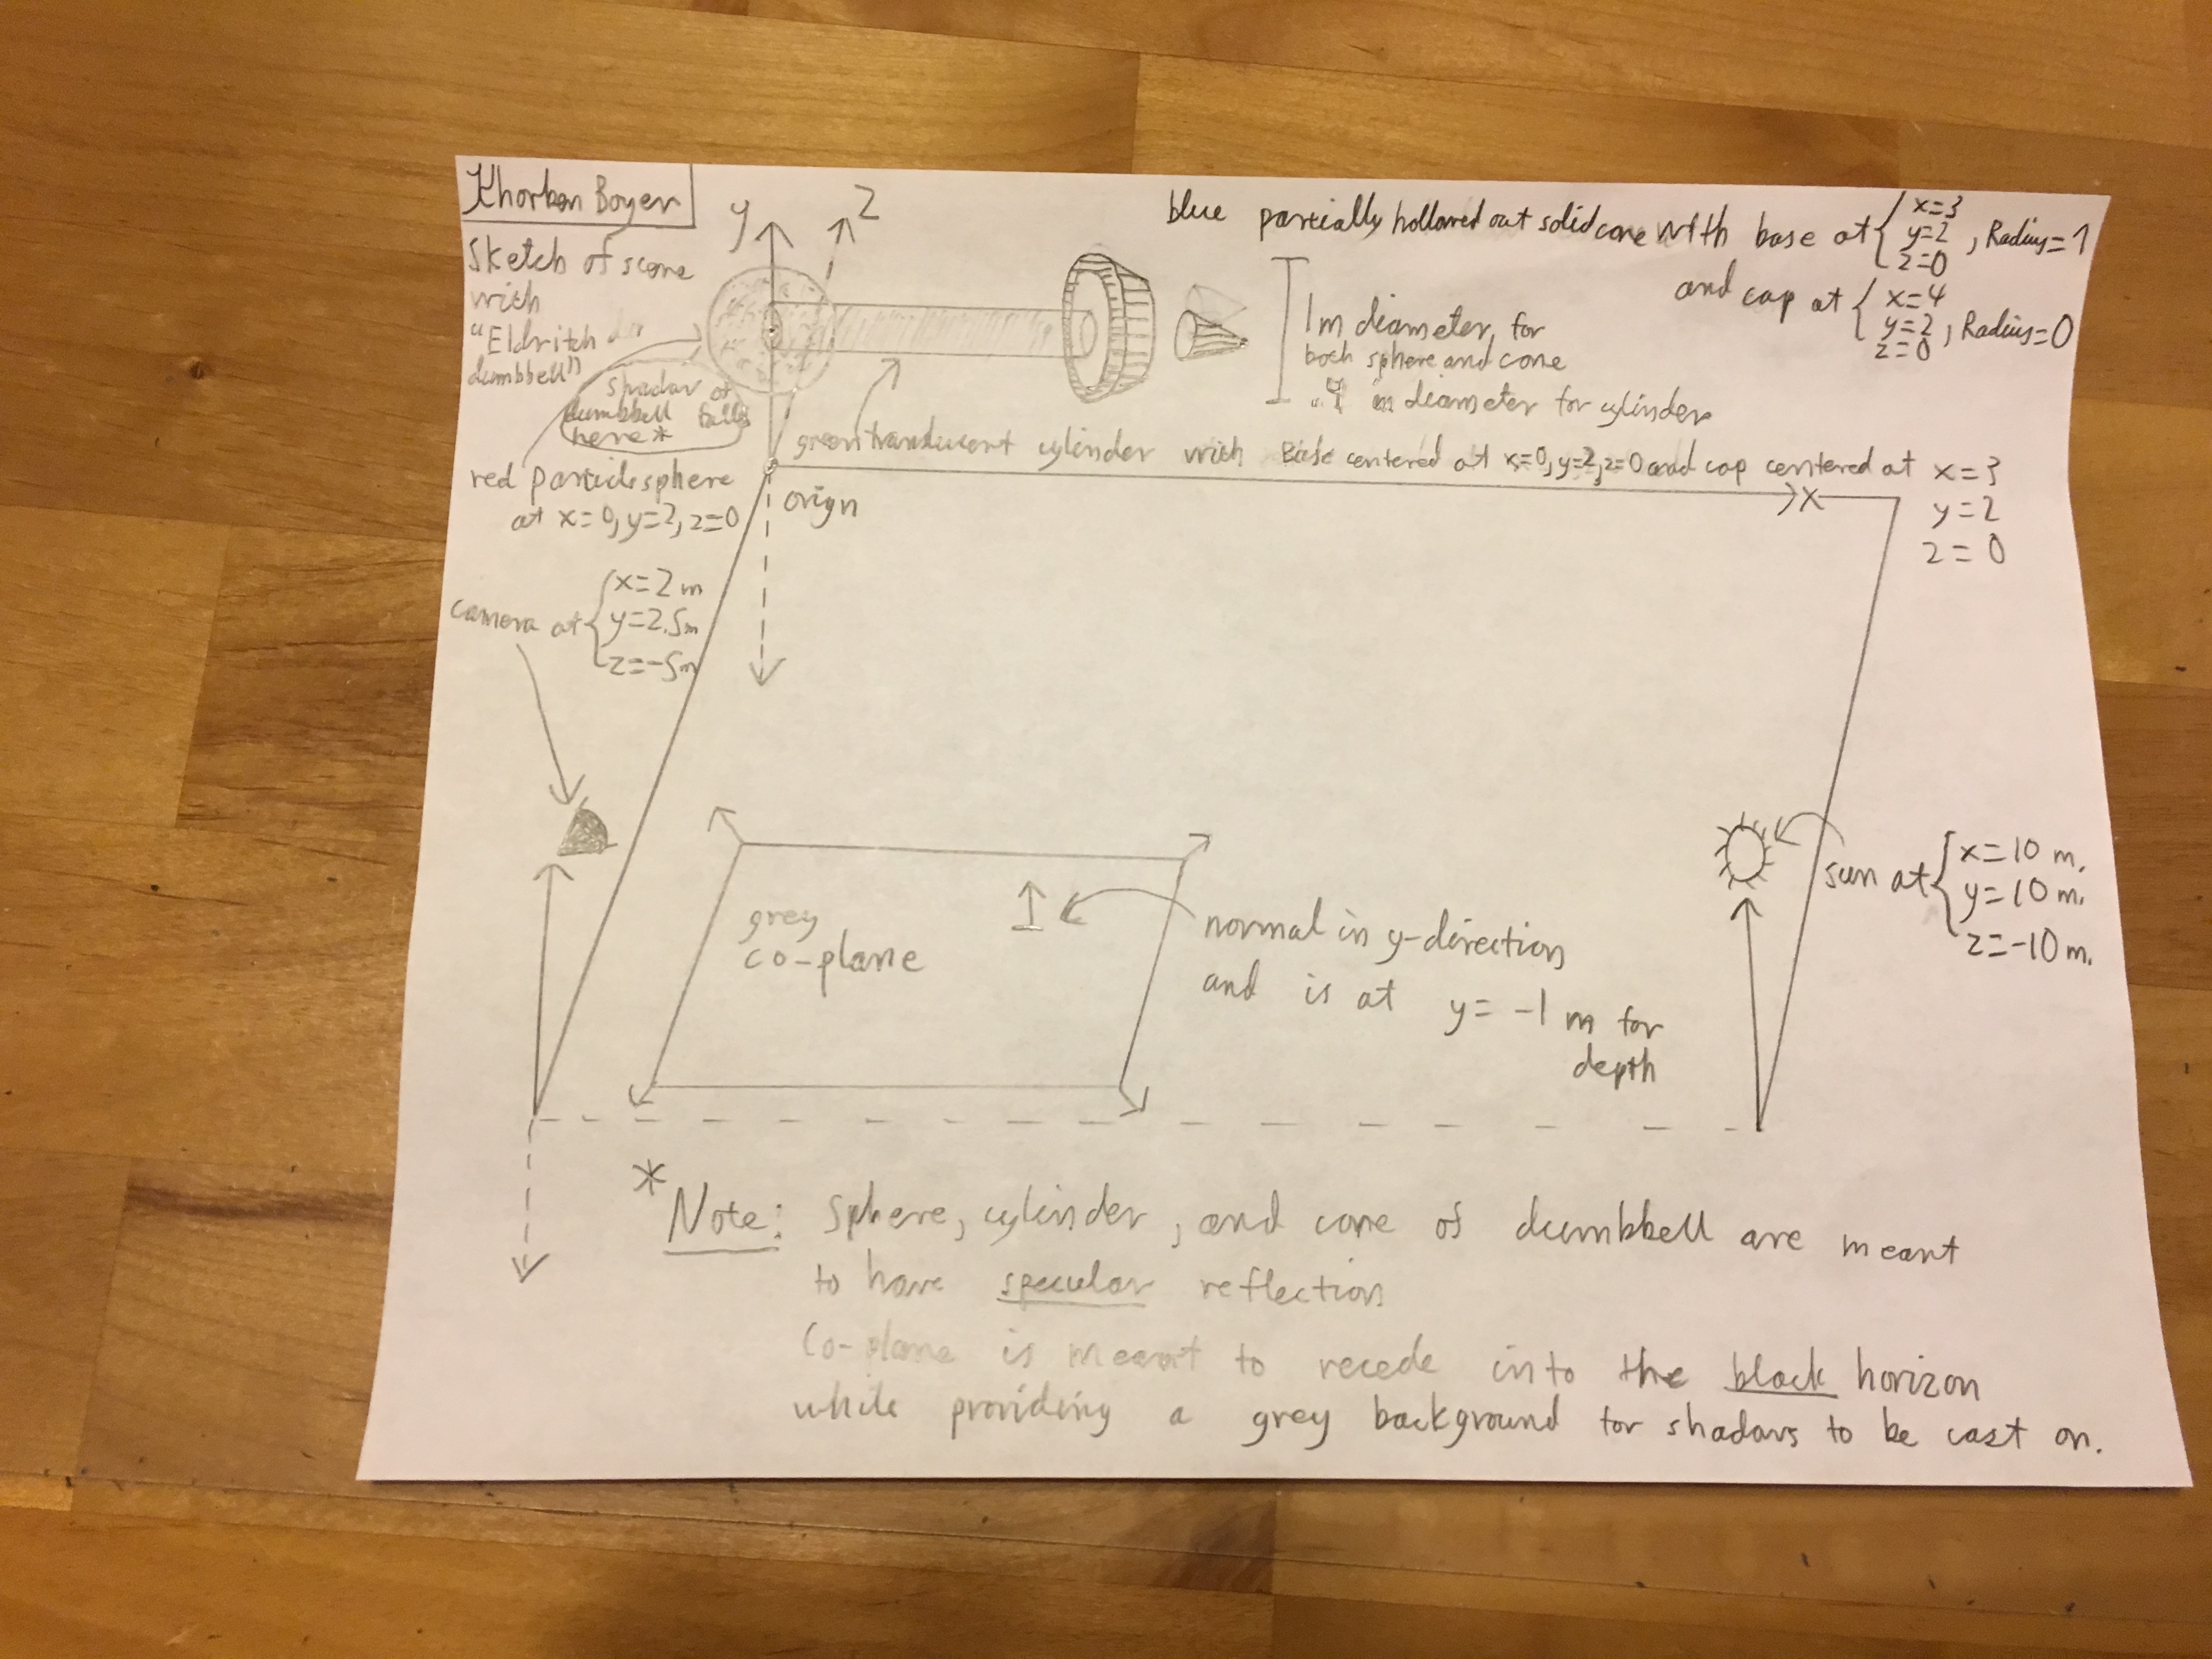 Khorben Boyer
Sketch of scene
with
"Eldritch
dumbbell"
y
z
blue partially hollowed out solid cone with base at { x=3
y=2 , Radius=1
z=0
and cap at { x=4
y=2 , Radius=0
z=0
1m diameter for
both sphere and cone
.4 m diameter for cylinder
shadow of
dumbbell falls
here*
green translucent cylinder with Base centered at x=0, y=2, z=0 and cap centered at x=3
y=2
z=0
red particle sphere
at x=0, y=2, z=0
orign
x
camera at { x=2m
y=2.5m
z=-5m
grey
co-plane
normal in y-direction
and is at y= -1 m for
depth
sun at { x=10 m.
y=10 m.
z=-10 m.
* Note: Sphere, cylinder, and cone of dumbbell are meant
to have specular reflection
Co-plane is meant to recede into the black horizon
while providing a grey background for shadows to be cast on.